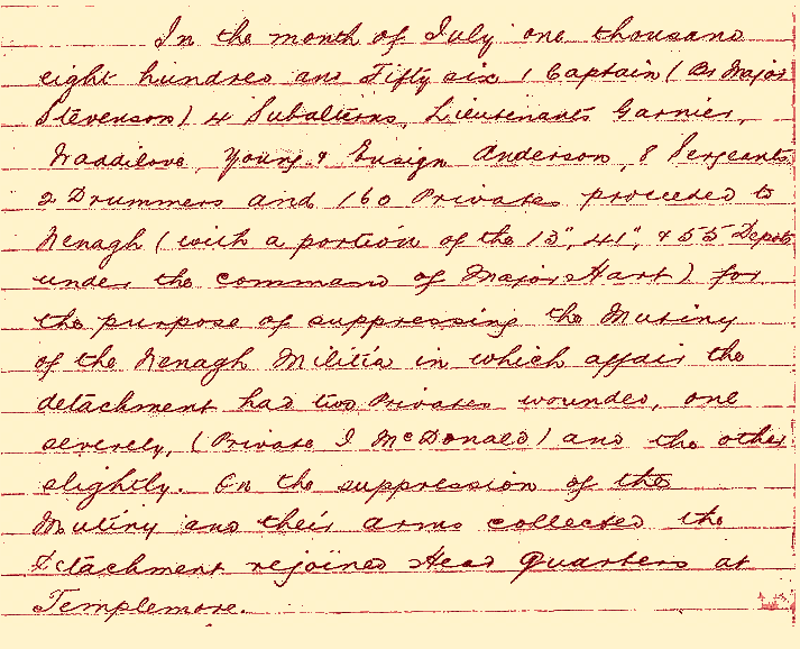 In the month of July one thousand
eight hundred and Fifty six 1 Captain (Br Major
Stevenson) 4 Subalterns, Lieutenants Garnier,
Waddilove, Young & Ensign Anderson, 8 Sergeants
2 Drummers and 160 Privates proceeded to
Nenagh (with a portion of the 13", 41", & 55 Depots
under the command of Major Hart) for
the purpose of suppressing the Mutiny
of the Nenagh Militia in which affair the
detachment had two Privates wounded, one
severely, (Private J McDonald) and the other
slightly. On the suppression of the
Mutiny and their arms collected the
Detachment rejoined Head Quarters at
Templemore.